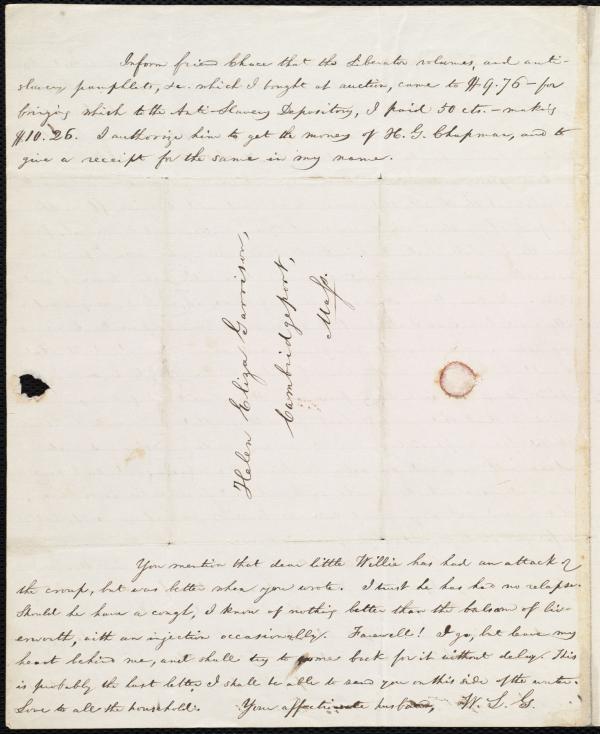 Inform friend Chace that the Liberator volumes, and anti-
slavery pamphlets, &c. which I bought at auction, came to $9.76 – for
bringing which to the Anti-Slavery Depository, I paid 50 cts. – making
$10.26. I authorize him to get the money of H. G. Chapman, and to
give a receipt for the same in my name.
Helen Eliza Garrison,
Cambridgeport,
Mass.
You mention that dear little Willie has had an attack of
the croup, but was better when you wrote. I trust he has had no relapse.
Should he have a cough, I know of nothing better than the balsam of liv-
erworth, with an injection occasionally. Farewell! I go, but leave my
heart behind me, and shall try to come back for it without delay. This
is probably the last letter I shall be able to send you on this side of the water.
Love to all the household. Your affectionate husband, W. L. G.